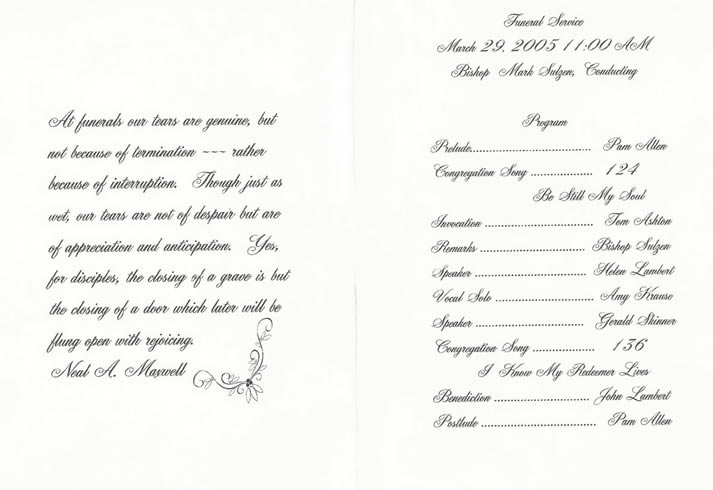 At funerals our tears are genuine, but
not because of termination ~~~ rather
because of interruption. Though just as
wet, our tears are not of despair but are
of appreciation and anticipation. Yes,
for disciples, the closing of a grave is but
the closing of a door which later will be
flung open with rejoicing.
Neal A. Maxwell
Funeral Service
March 29, 2005 11:00 AM
Bishop Mark Sulzen, Conducting
Program
Prelude.............................. Pam Allen
Congregation Song ....................... 124
Be Still My Soul
Invocation ........................... Tom Ashton
Remarks ........................... Bishop Sulzen
Speaker ............................ Helen Lambert
Vocal Solo ......................... Amy Krause
Speaker ........................... Gerald Skinner
Congregation Song ................ 136
I Know My Redeemer Lives
Benediction ........................ John Lambert
Postlude ............................ Pam Allen